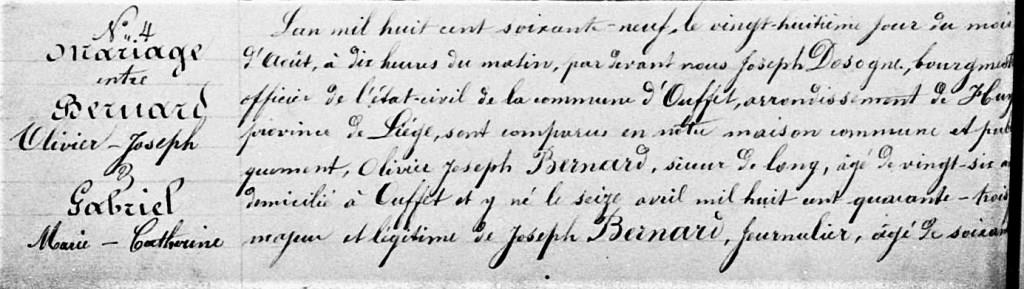 N° 4
Mariage
entre
Bernard
Olivier-Joseph
&
Gabriel
Marie-Catherine
L'an mil huit cent soixante-neuf, le vingt-huitième jour du mois
d'Août, à dix heures du matin, par devant nous Joseph Dosogne, bourgmest
officier de l'état-civil de la commune d'Ouffet, arrondissement de Huy
province de Liége, sont comparus en notre maison commune et pub
quement, Olivier Joseph Bernard, scieur de long, âgé de vingt-six a
domicilié à Ouffet et y né le seize avril mil huit cent quarante-trois
majeur et légitime de Joseph Bernard, journalier, âgé de soixan